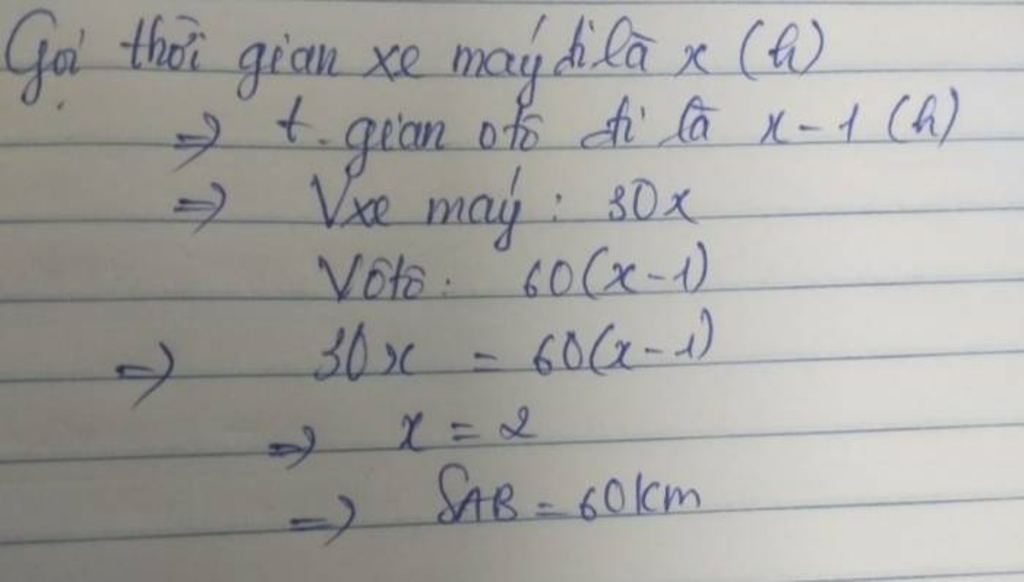 Gọi thời gian xe máy đi là x (h)
=> t. gian oto đi là x - 1 (h)
=> Vxe máy : 30x
Vôtô : 60(x-1)
=> 30x = 60(x-1)
=> x = 2
=> SAB = 60km